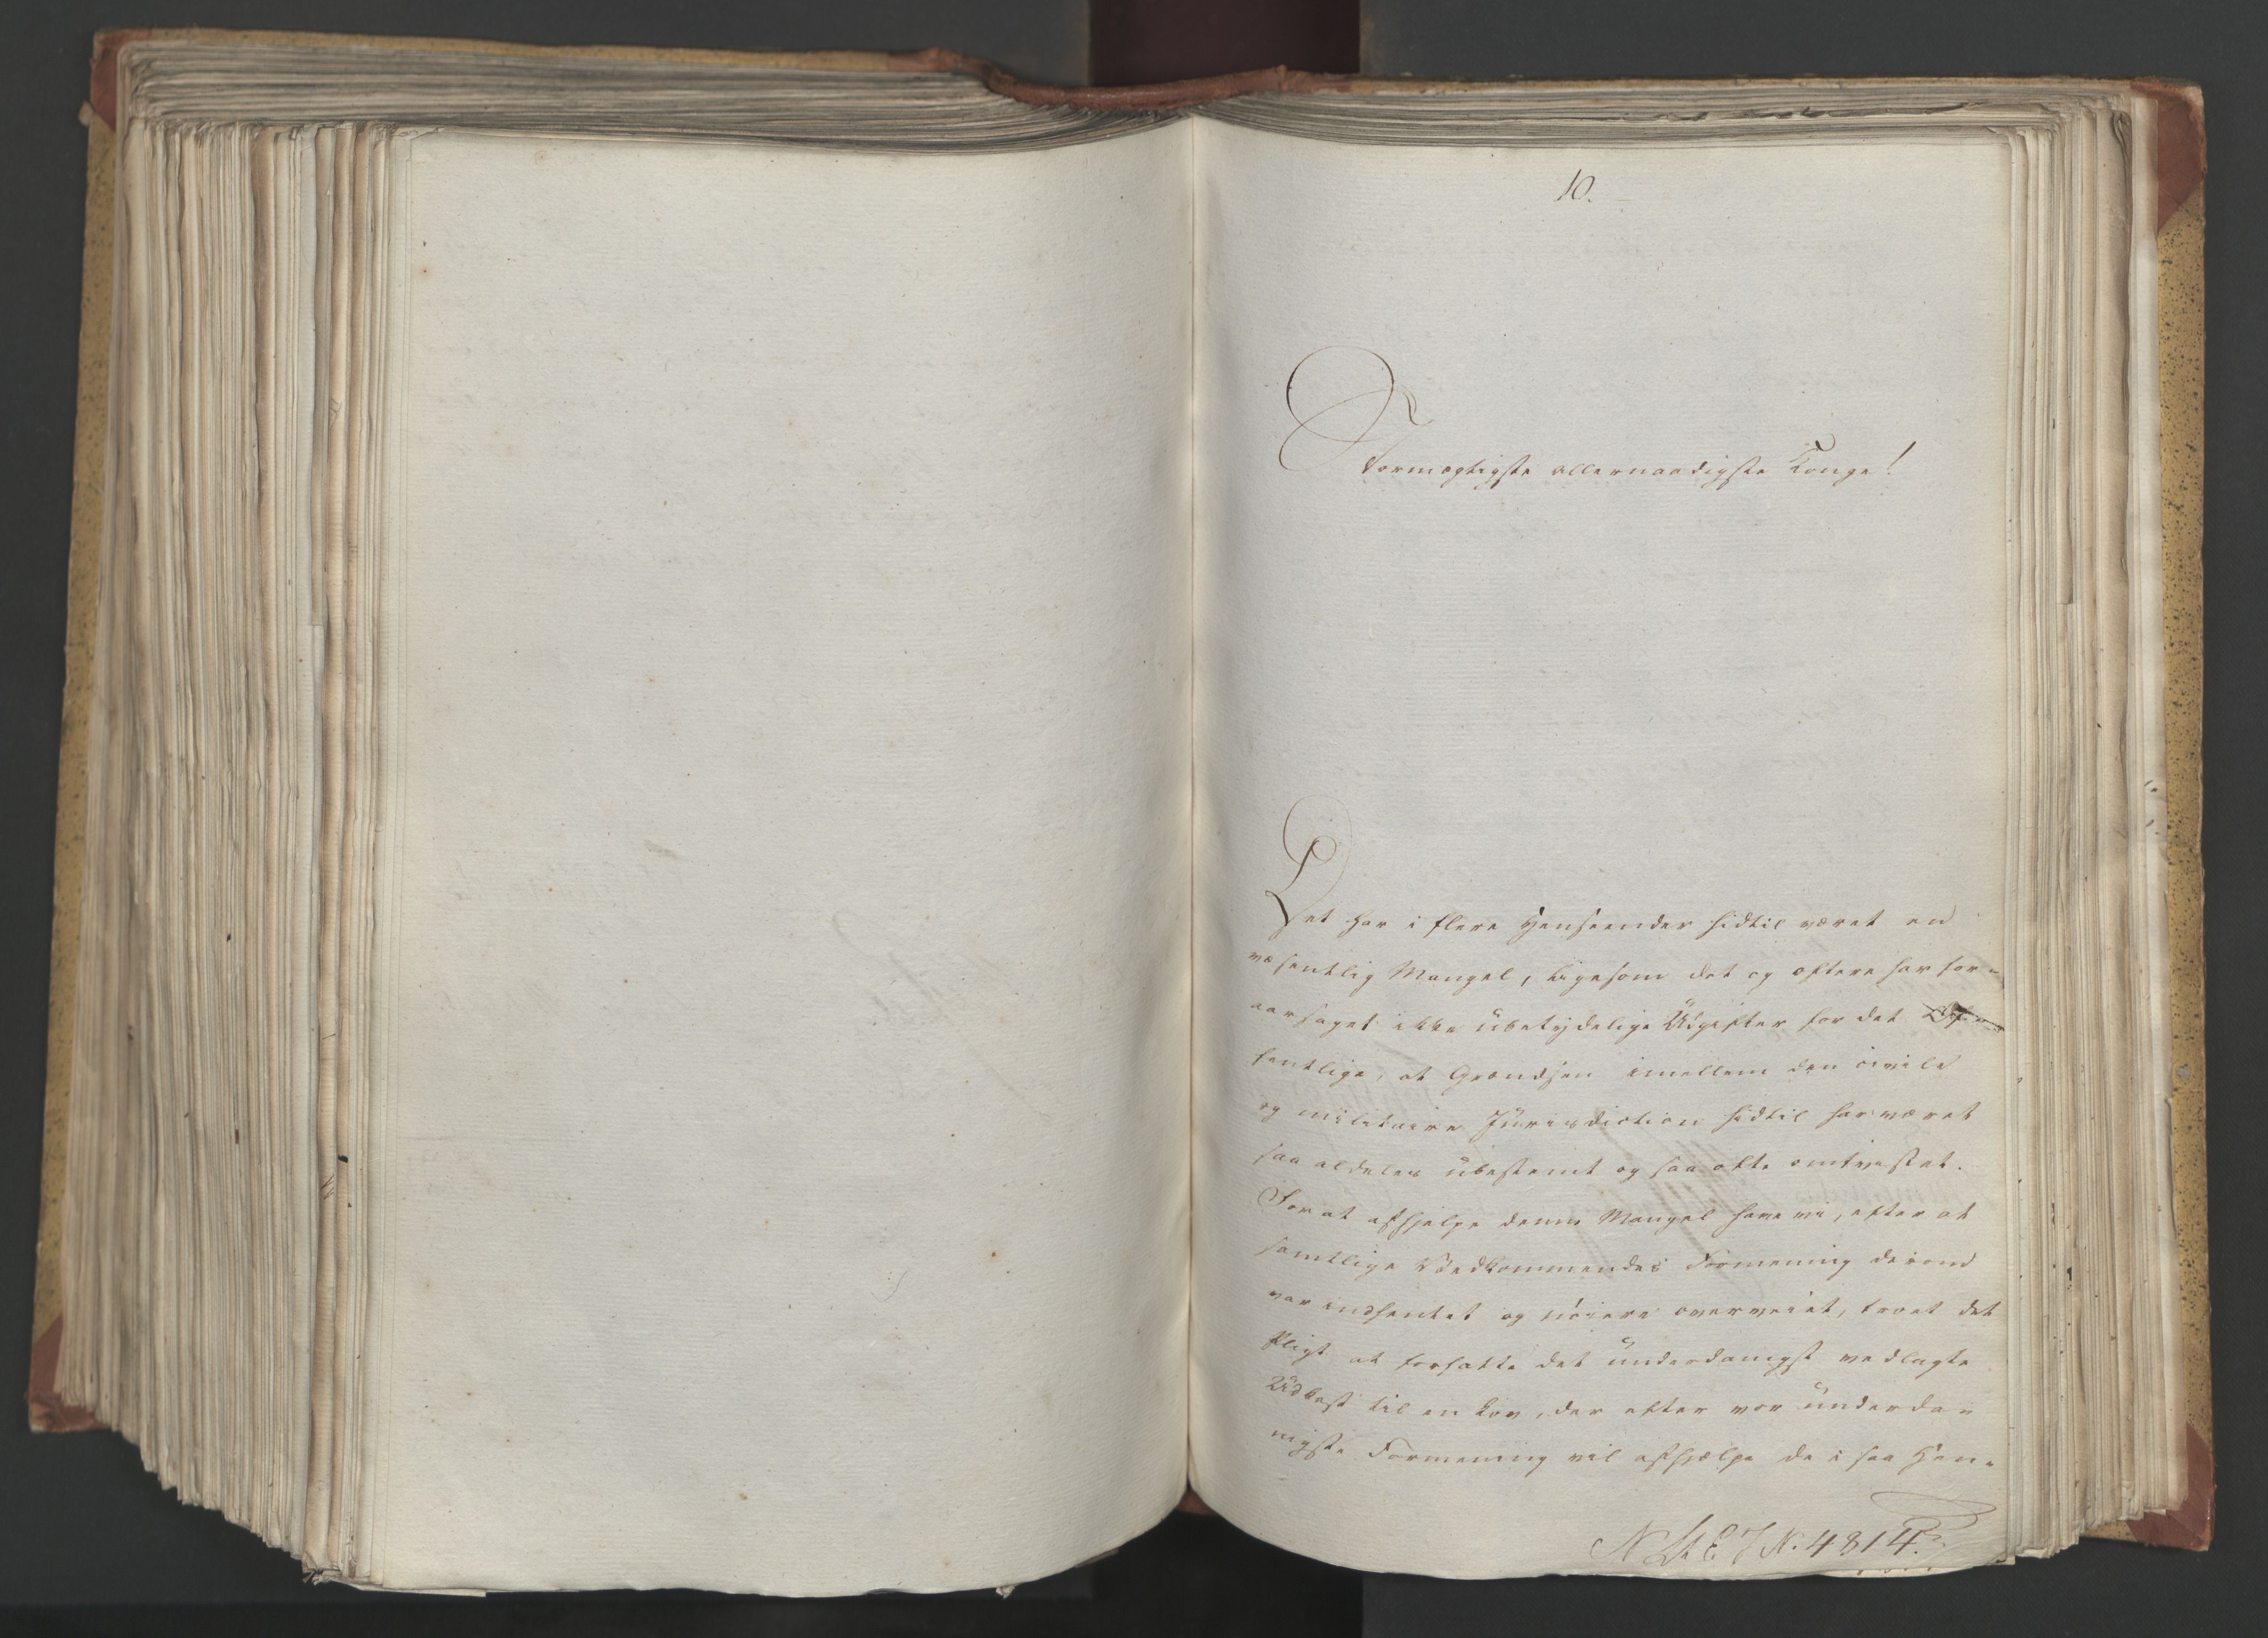 10.
Stormægtigste allernaadigste Konge!
Det har i flere Henseender hidtil været en
væsentlig Mangel, ligesom det og oftere har for-
aarsaget ikke ubetydelige Udgifter for det Of-
fentlige, at Grændsen imellem den civile
og militaire Jurisdiction hidtil har været
saa aldeles ubestemt og saa ofte omtvistet.
For at afhjelpe denne Mangel have vi, efter at
samtlige Vedkommendes Formening derom
var indhentet og nöiere overveiet, troet det
Pligt at forfatte det underdanigst vedlagte
Udkast til en Lov, der efter vor underda-
nigste Formening vil afhjælpe de i saa Hen-
No. 4814.